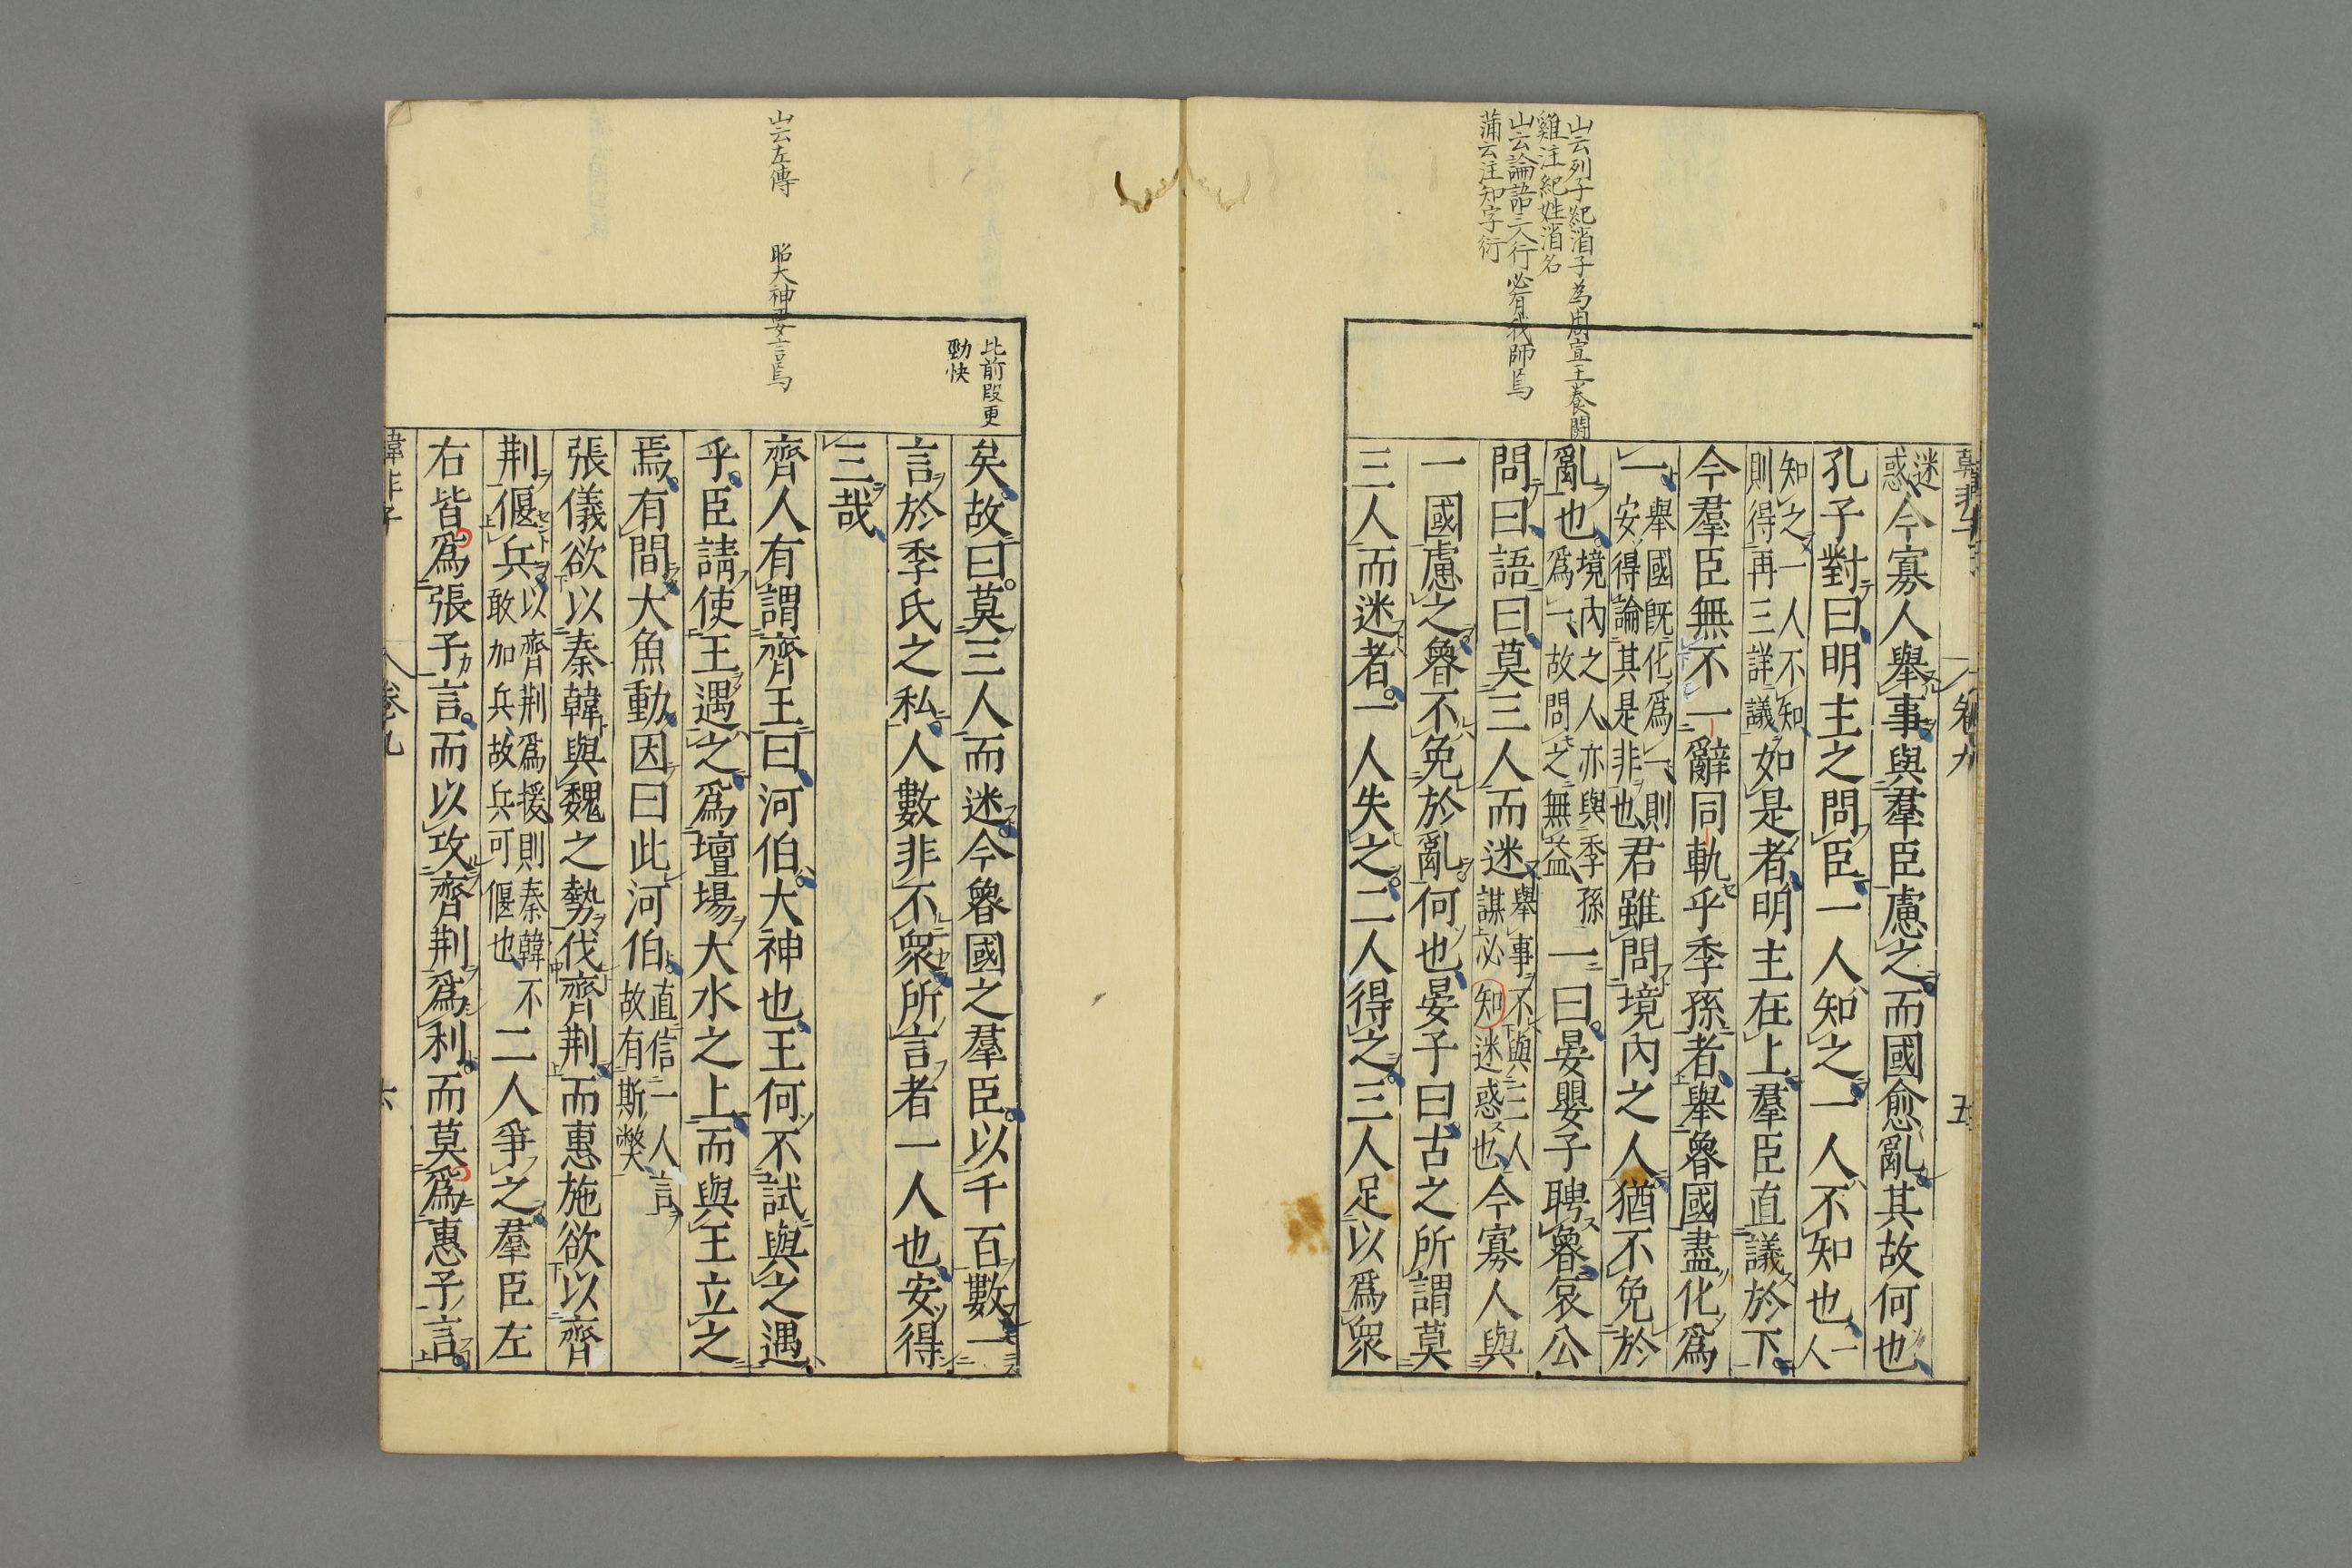 山云列子紀渻子為周宣王養鬪
雞注紀姓渻名
山云論語三人行必有我師焉
蒲云注知字衍
韓非子 卷九 五
迷惑今寡人舉事與羣臣慮之而國愈亂其故何也
孔子對曰明主之問臣一人知之一人不知也一人
知之一人不知則得再三詳議如是者明主在上羣臣直議於下
今羣臣無不一辭同軌乎季孫者舉魯國盡化爲
一舉國既化爲一則安得論其是非也君雖問境內之人猶不免於
亂也境內之人亦與季孫爲一故問之無益一曰晏嬰子聘魯哀公
問曰語曰莫三人而迷舉事不與三人謀必知迷惑也今寡人與
一國慮之魯不免於亂何也晏子曰古之所謂莫
三人而迷者一人失之二人得之三人足以爲衆
比前段更
勁快
矣故曰莫三人而迷今魯國之羣臣以千百數一
言於季氏之私人數非不衆所言者一人也安得
三哉
山云左傳 昭大神要言焉
齊人有謂齊王曰河伯大神也王何不試與之遇
乎臣請使王遇之爲壇場大水之上而與王立之
焉有間大魚動因曰此河伯直信一人言故有斯弊
張儀欲以秦韓與魏之勢伐齊荆而惠施欲以齊
荆偃兵以齊荆爲援則秦韓不敢加兵故兵可偃也二人爭之羣臣左
右皆爲張子言而以攻齊荆爲利而莫爲惠子言
韓非子 卷九 六